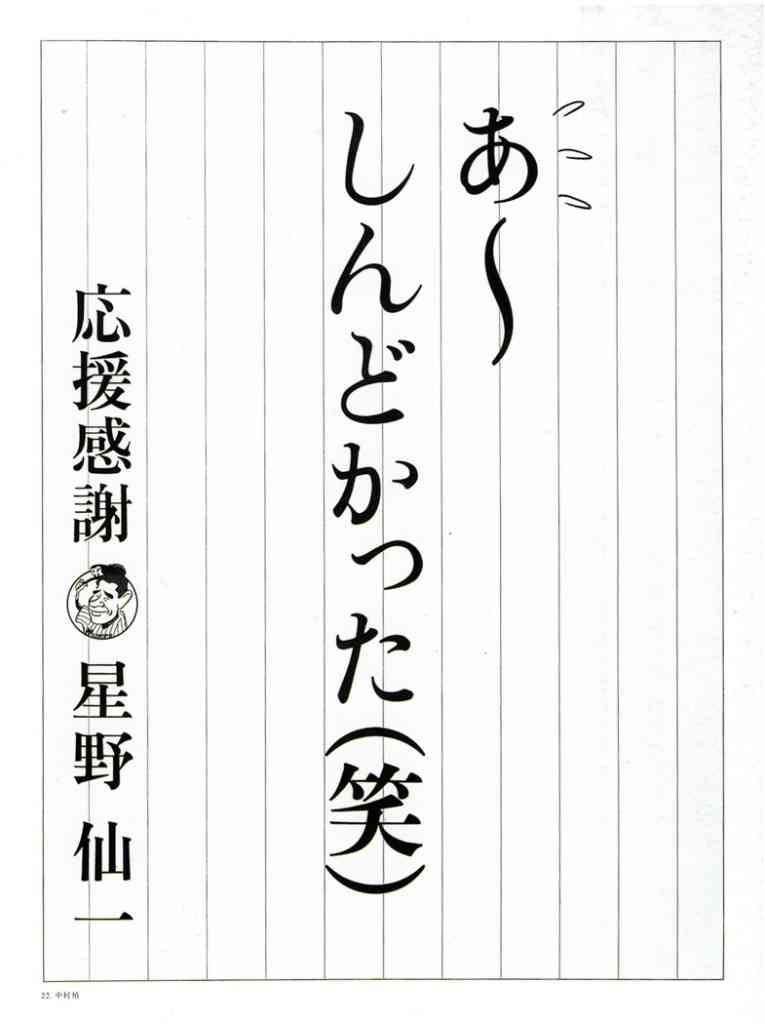 あ〜
しんどかった(笑)
応援感謝 星野 仙一
22. 中村禎